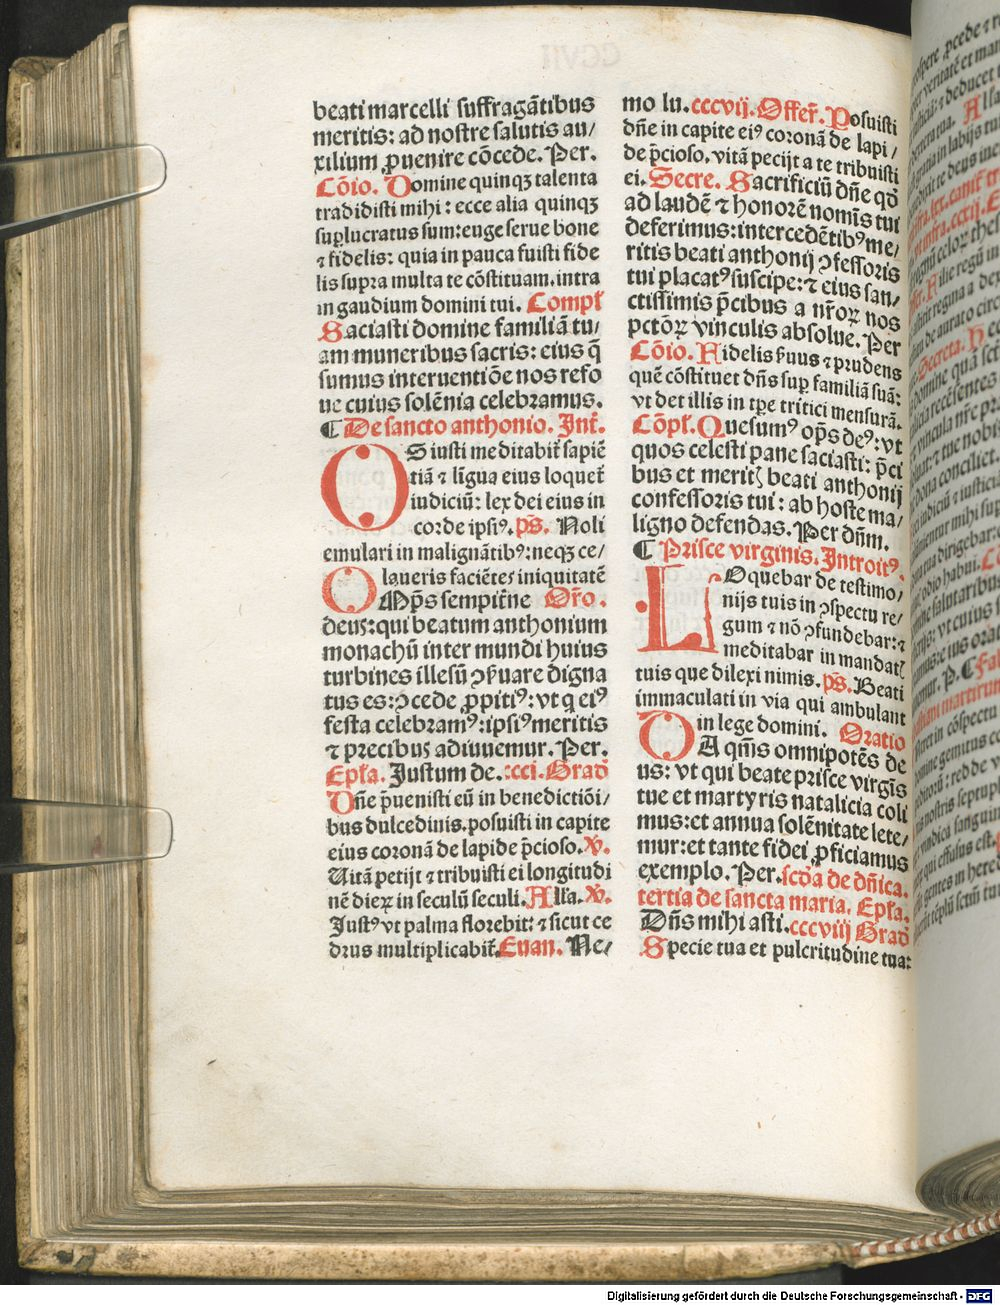 beati marcelli suffragātibus
meritis: ad nostre salutis au/
xilium ꝓuenire cōcede. Per.
Cōio. Domine quinqꝫ talenta
tradidisti mihi: ecce alia quinqꝫ
suꝑlucratus sum: euge serue bone
⁊ fidelis: quia in pauca fuisti fide
lis supra multa te cōstituam. intra
in gaudium domini tui. Compl̄
Saciasti domine familiā tu/
am muneribus sacris: eius q̄
sumus interuentiōe nos refo
ue cuius solēnia celebramus.
¶ De sancto anthonio. Int̄.
OS iusti meditabit̄ sapiē
tiā ⁊ līgua eius loquet̄
iudiciū: lex dei eius in
corde ipsiꝰ. p̄s. Noli
emulari in malignātibꝰ: neqꝫ ce/
laueris faciētes iniquitatē
OMp̄s sempit̄ne Or̄o.
deus: qui beatum anthonium
monachū inter mundi huius
turbines illesū ꝯẜuare digna
tus es: ꝯcede ꝓpitiꝰ: vt q eiꝰ
festa celebramꝰ: ipsiꝰ meritis
⁊ precibus adiuuemur. Per.
Ep̄la. Justum de. ccci. Grad̄
Dn̄e p̄uenisti eū in benedictiōi/
bus dulcedinis. posuisti in capite
eius coronā de lapide p̄cioso. v̄.
Uitā petijt ⁊ tribuisti ei longitudi
nē dieꝝ in seculū seculi. Alla. v̄.
Justꝰ vt palma florebit: ⁊ sicut ce
drus multiplicabit̄. Euan. Ne/
mo lu. cccvij. Offer̄. Posuisti
dn̄e in capite eiꝰ coronā de lapi/
de p̄cioso. vitā pecijt a te tribuisti
ei. Secre. Sacrificiū dn̄e qd̄
ad laudē ⁊ honorē nomīs tui
deferimus: intercedētibꝰ me/
ritis beati anthonij ꝯfessoris
tui placatꝰ suscipe: ⁊ eius san/
ctissimis p̄cibus a nr̄oꝝ nos
pctōꝝ vinculis absolue. Per
Cōio. Fidelis ẜuus ⁊ prudens
quē cōstituet dn̄s suꝑ familiā suā:
vt det illis in tꝑe tritici mensurā.
Cōpl̄. Quesumꝰ op̄s deꝰ: vt
quos celesti pane saciasti: p̄ci
bus et merit̄ beati anthonij
confessoris tui: ab hoste ma/
ligno defendas. Per dn̄m.
¶ Prisce virginis. Introitꝰ.
LOquebar de testimo/
nijs tuis in ꝯspectu re/
gum ⁊ nō ꝯfundebar: ⁊
meditabar in mandat̄
tuis que dilexi nimis. p̄s. Beati
immaculati in via qui ambulant
in lege domini. Oratio
DA qm̄s omnipotēs de
us: vt qui beate prisce virgīs
tue et martyris natalicia coli
mus: et annua solēnitate lete/
mur: et tante fidei ꝓficiamus
exemplo. Per. scd̄a de dn̄ica.
tertia de sancta maria. Ep̄la.
Dn̄s mihi asti. cccviij Grad̄
Specie tua et pulcritudine tua:
Digitalisierung gefördert durch die Deutsche Forschungsgemeinschaft - DFG